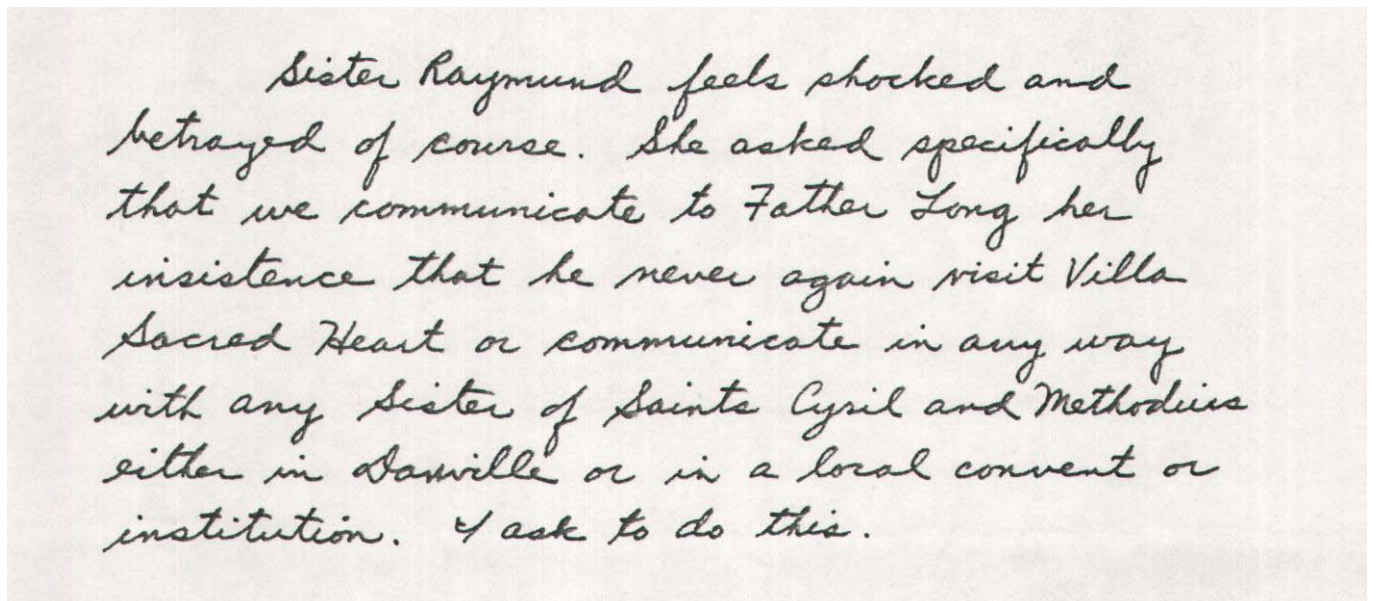 Sister Raymund feels shocked and
betrayed of course. She asked specifically
that we communicate to Father Long her
insistence that he never again visit Villa
Sacred Heart or communicate in any way
with any Sister of Saints Cyril and Methodius
either in Danville or in a local convent or
institution. I ask to do this.